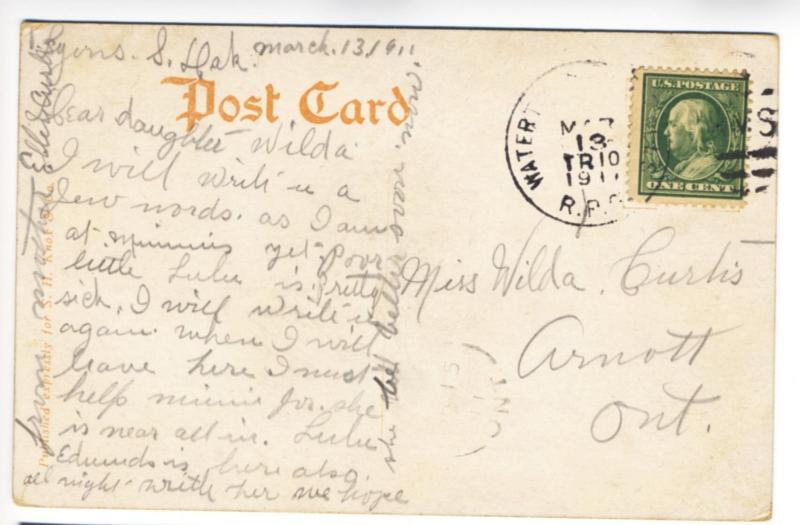 Lyons. S. Dak. March. 13, 1911
Post Card
Dear daughter Wilda
I will write u a
few words. as I am
at minnies yet. poor
little Lulu is pretty
sick. I will write u
again when I will
leave here I must
help minnie for she
is near all in. Lulu
Edmunds is here also.
all night with her we hope
she will better soon. now.
from mother Ellen Curtis
Published expressly for S. H. Knox & Co.
WATERT
MAR
13
TR 10
1911
R.P.O
U.S. POSTAGE
ONE CENT
Miss Wilda Curtis
Arnott
Ont.
15
ONT